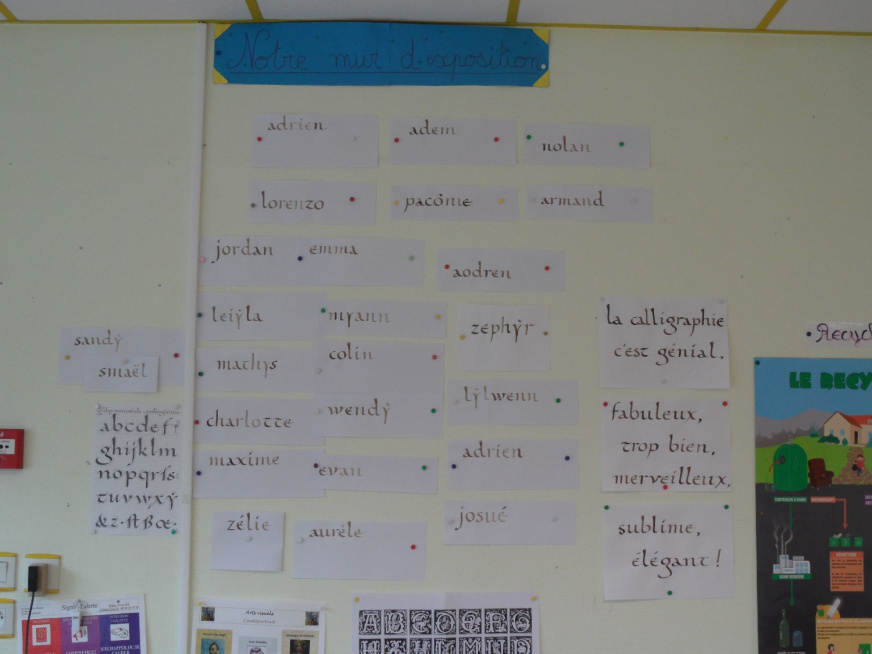 Notre mur d'exposition
adrien
adem
nolan
lorenzo
pacôme
armand
jordan
emma
aodren
leiÿla
mÿann
zephÿr
sandÿ
smaël
mathÿs
colin
lÿlwenn
charlotte
wendÿ
maxime
evan
adrien
zélie
aurèle
josué
la calligraphie
c'est génial.
fabuleux,
trop bien,
merveilleux,
sublime,
élégant !
abcdef
ghijklm
nopqrſs
tuvwxÿ
Recycl
LE RECY
Arts visuels
ABCDEFG